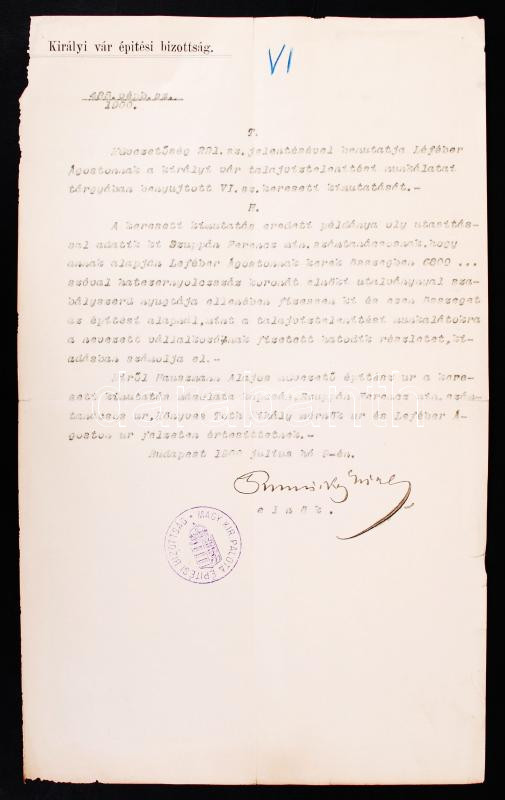 Királyi vár épitési bizottság.
VI
488. vépb. sz.
1900.
T.
Müvezetőség 221. sz. jelentésével bemutatja Léféber
Ágostonnak a királyi vár talajviztelenitési munkálatai
tárgyában benyujtott VI. sz. kereseti kimutatását.-
H.
A kereseti kimutatás eredeti példánya oly utasitás-
sal adatik ki Szuppán Ferencz min. számtanácsosnak, hogy
annak alapján Leféber Ágostonnak kerek összegben 6800 ...
szóval hatezernyolczszáz koronát elnöki utalványnyal sza-
bályszerü nyugtája ellenében fizessen ki és ezen összeget
az épitési alapnál, mint a talajviztelenitési munkálatokra
a nevezett vállalkozónak fizetett hatodik részletet, ki-
adásban számolja el.-
Miről Hauszmann Alajos müvezető épitész ur a kere-
seti kimutatás másolata kapcsán, Szuppán Ferencz min. szám-
tanácsos ur, Könyves Tóth Mihály mérnök ur és Leféber Á-
goston ur jelzeten értesittetnek.-
Budapest 1900 julius hó 9-én.
elnök.
MAGY. KIR. PALOTA ÉPITÉSI BIZOTTSÁG
darabanth